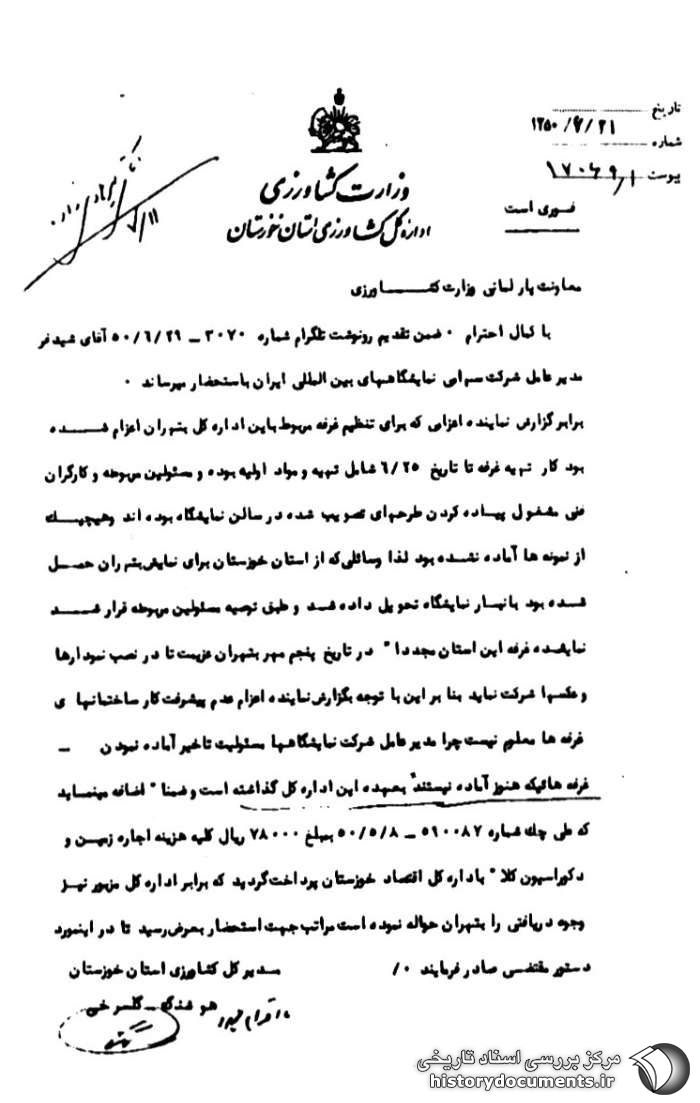 تاریخ ۱۳۵۰/۷/۲۱
شماره
پیوست ۱۷۰۴۹/۱
فوری است
وزارت کشاورزی
اداره کل کشاورزی استان خوزستان
۷/۱۱
معاونت پارلمانی وزارت کشـــــاورزی
با کمال احترام ۰ ضمن تقدیم رونوشت تلگرام شماره ۳۰۷۰ ــ ۵۰/۶/۲۹ آقای شیدفر
مدیر عامل شرکت سهامی نمایشگاههای بین المللی ایران باستحضار میرساند ۰
برابر گزارش نماینده اعزامی که برای تنظیم غرفه مربوط باین اداره کل بتهران اعزام شـــــده
بود کار تهیه غرفه تا تاریخ ۶/۲۵ شامل تهیه و مواد اولیه بوده و مسئولین مربوطه و کارگران
فنی مشغول پیاده کردن طرحهای تصویب شده در سالن نمایشگاه بوده اند وهیچیــك
از نمونه ها آماده نشده بود لذا وسائلی که از استان خوزستان برای نمایش بتهران حمــل
شده بود بانبار نمایشگاه تحویل داده شد و طبق توصیه مسئولین مربوطه قرار شـــد
نماینده غرفه این استان مجددا " در تاریخ پنجم مهر بتهران عزیمت تا در نصب نمودارها
و عکسها شرکت نماید بنا بر این با توجه بگزارش نماینده اعزام عدم پیشرفت کار ساختمانهای
غرفه ها معلوم نیست چرا مدیر عامل شرکت نمایشگاهها مسئولیت تاخیر آماده نمودن ــ
غرفه هائیکه هنوز آماده نیستند بعهده این اداره کل گذاشته است و ضمنا " اضافه مینماید
که طی چك شماره ۵۹۰۰۸۷ ــ ۵۰/۵/۸ بمبلغ ۷۸۰۰۰ ریال کلیه هزینه اجاره زمین و
دکوراسیون کلا " باداره کل اقتصاد خوزستان پرداخت گردید که برابر اداره کل مزبور نیــز
وجوه دریافتی را بتهران حواله نموده است مراتب جهت استحضار بعرض رسید تا در اینمورد
دستور مقتضی صادر فرمایند ۰/ مدیر کل کشاورزی استان خوزستان
هوشنگ ــ گلسرخی
اقدام شود
مرکز بررسی اسناد تاریخی
historydocuments.ir